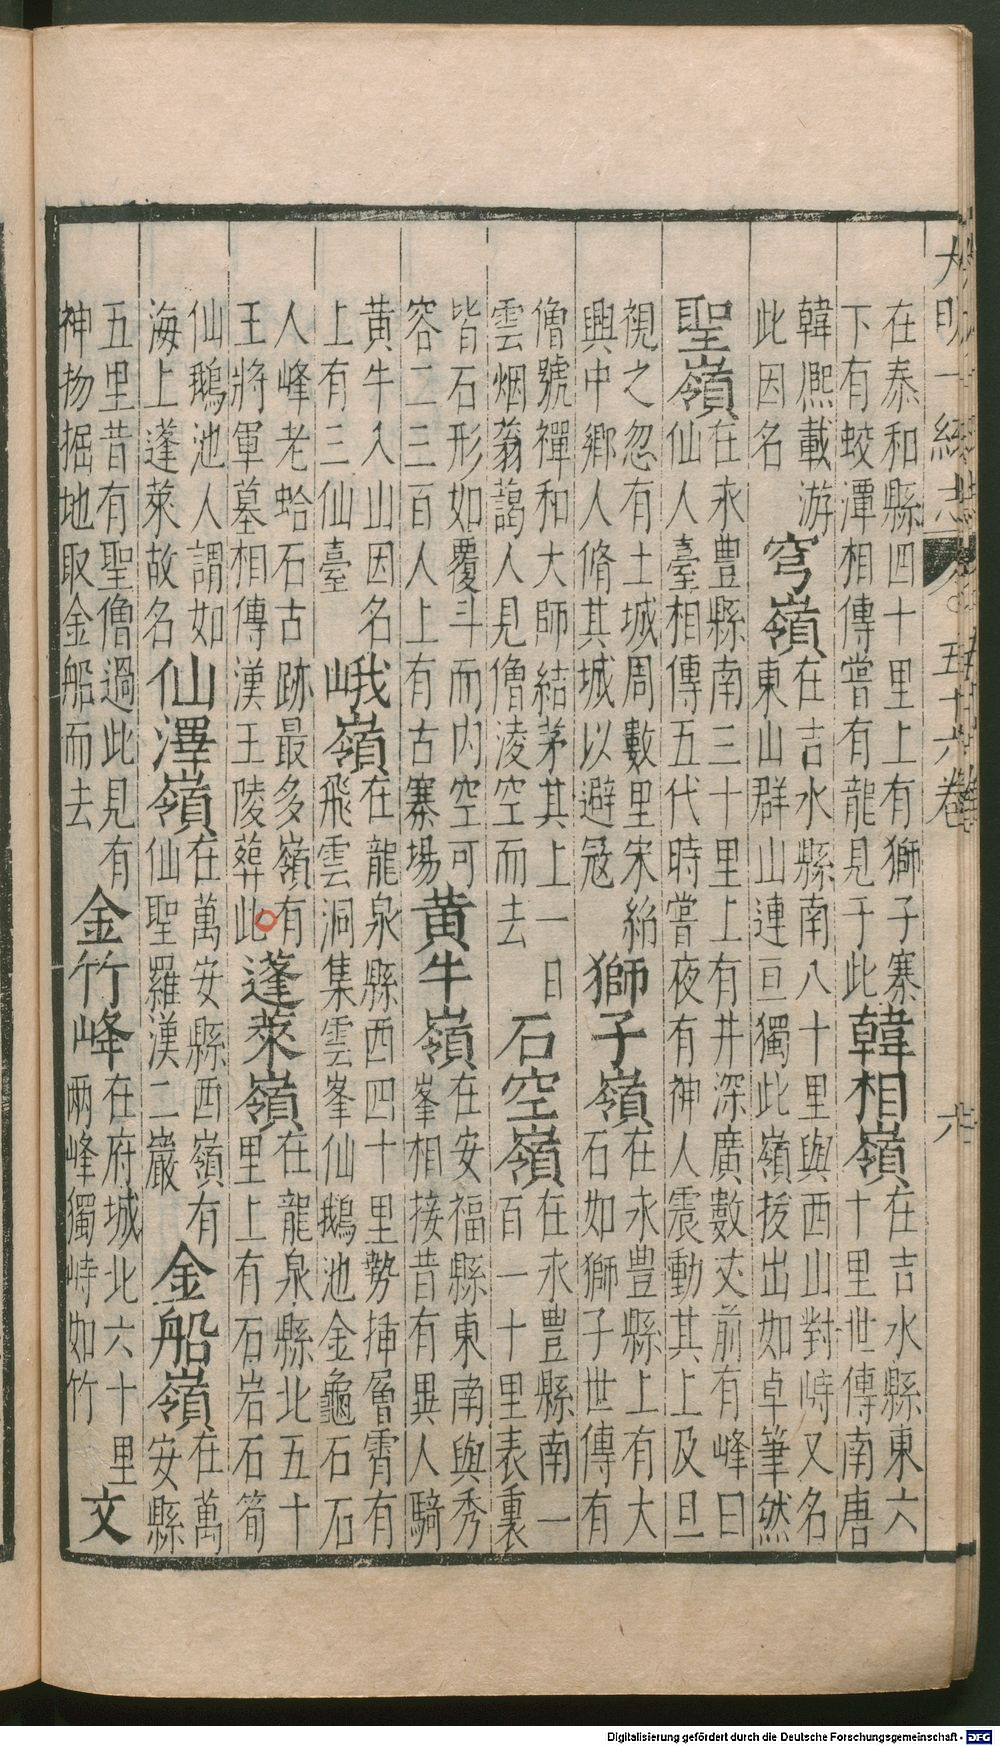 大明一統志 五十六卷 六
在泰和縣四十里上有獅子寨下有蛟潭相傳嘗有龍見于此韓相嶺在吉水縣東六十里世傳南唐
韓熈載游此因名穹嶺在吉水縣南八十里與西山對峙又名東山群山連亘獨此嶺拔出如卓筆然
聖嶺在永豊縣南三十里上有井深廣數丈前有峰曰仙人臺相傳五代時嘗夜有神人震動其上及旦
視之忽有土城周數里宋紹興中鄉人脩其城以避冦獅子嶺在永豊縣上有大石如獅子世傳有
僧號禪和大師結茅其上一日雲烟蓊藹人見僧淩空而去石空嶺在永豊縣南一百一十里表裏
皆石形如覆斗而内空可容二三百人上有古寨塲黄牛嶺在安福縣東南與秀峯相接昔有異人騎
黄牛入山因名上有三仙臺峨嶺在龍泉縣西四十里勢揷層霄有飛雲洞集雲峯仙鵝池金龜石石
人峰老蛤石古跡最多嶺有王將軍墓相傳漢王陵葬此蓬萊嶺在龍泉縣北五十里上有石岩石筍
仙鵝池人謂如海上蓬萊故名仙澤嶺在萬安縣西嶺有仙聖羅漢二巖金船嶺在萬安縣
五里昔有聖僧過此見有神物掘地取金船而去金竹峰在府城北六十里兩峰獨峙如竹文
Digitalisierung gefördert durch die Deutsche Forschungsgemeinschaft - DFG